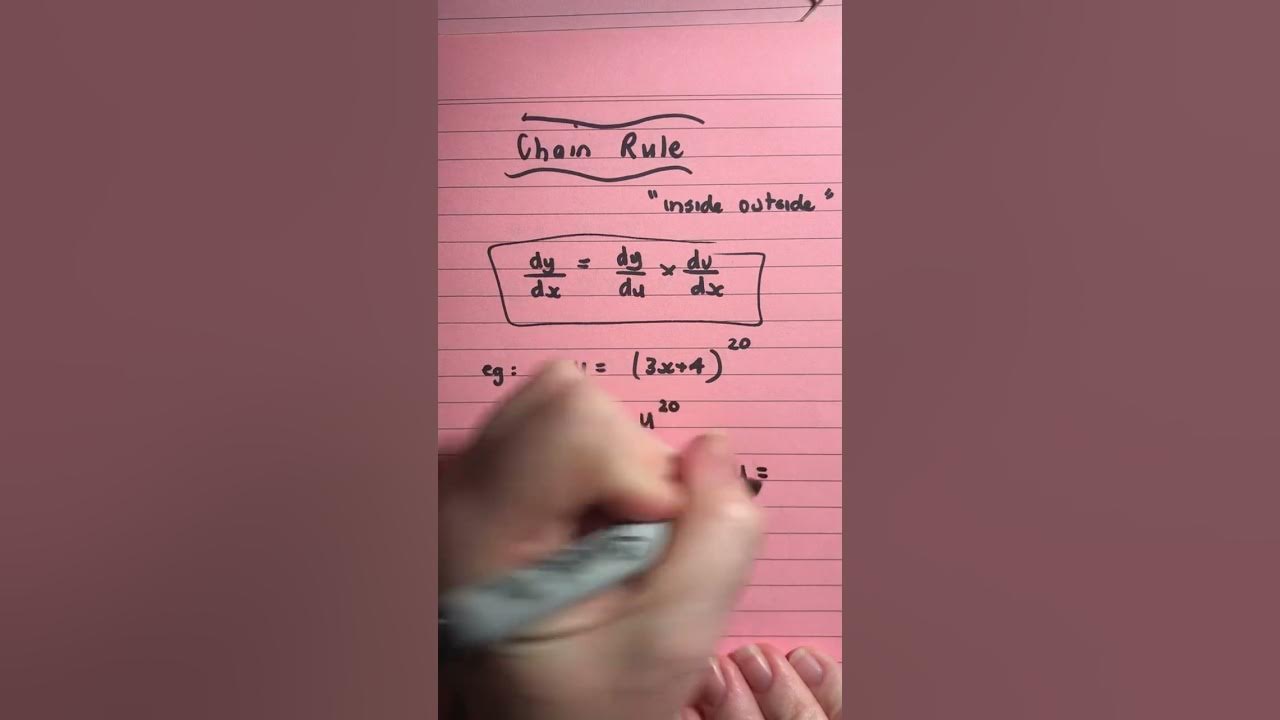 Chain Rule
"inside outside"
dy/dx = dy/du × du/dx
eg: y = (3x+4)^20
u^20
=